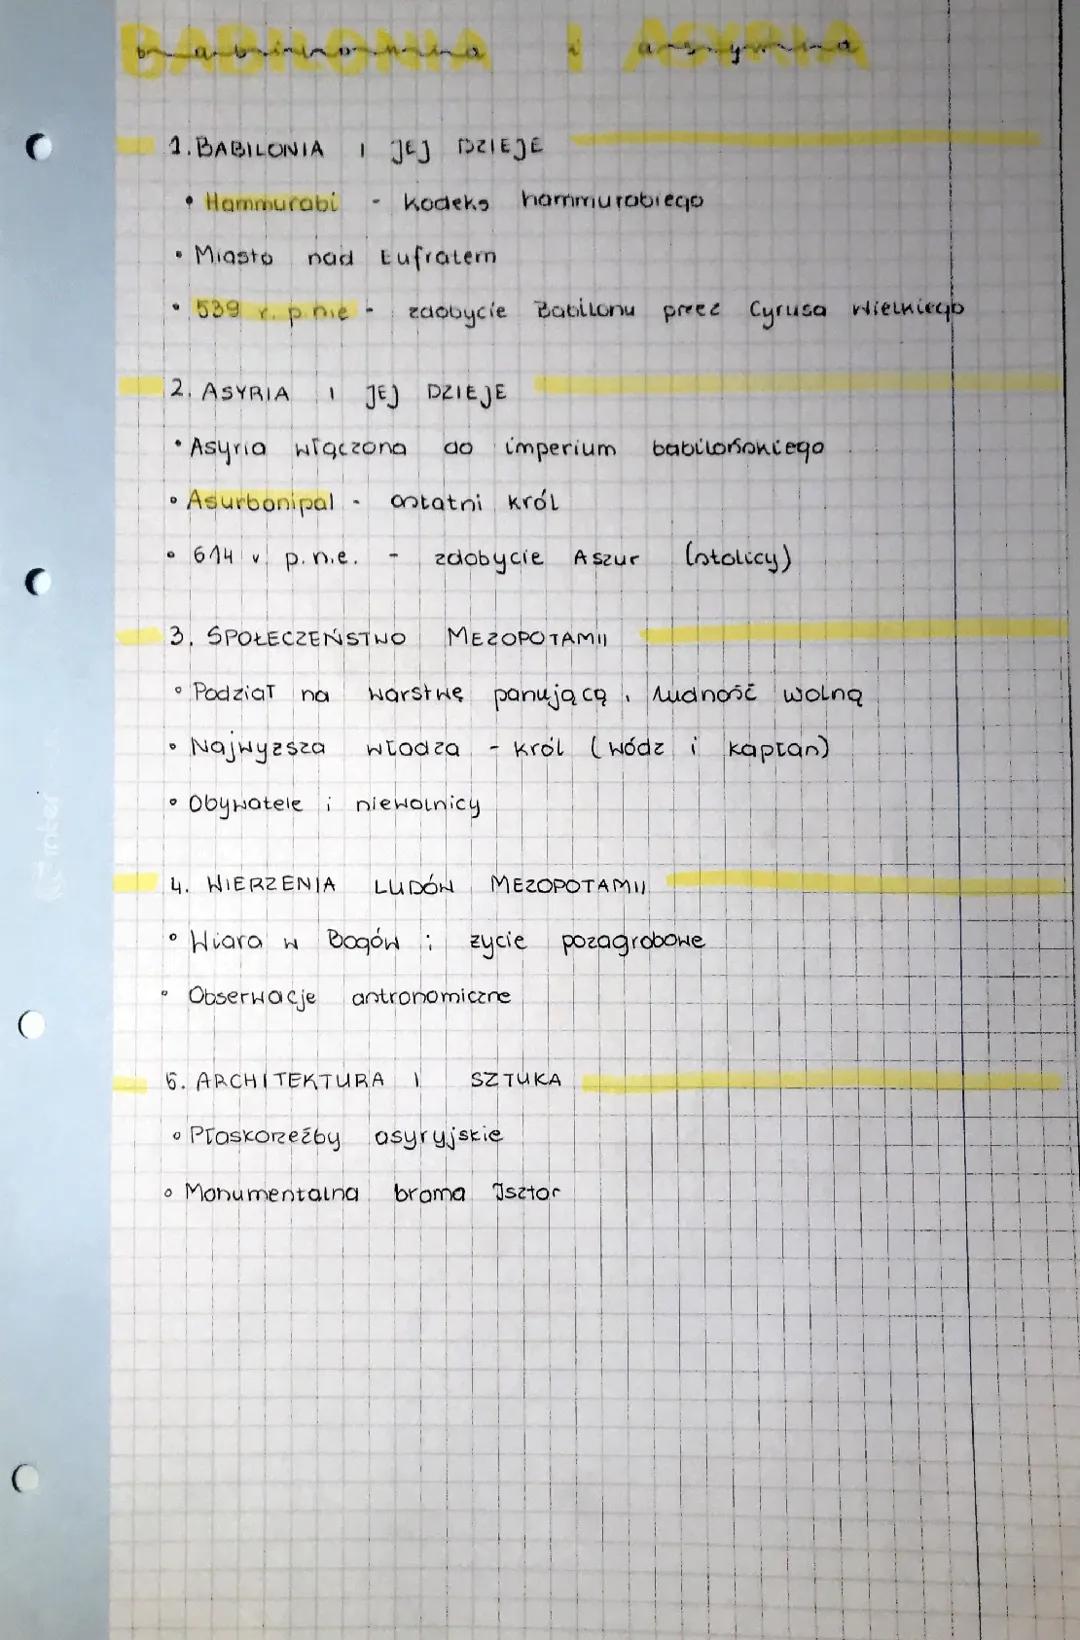 BABILONIA I ASYRIA
babilonia i asyria
1. BABILONIA I JEJ DZIEJE
• Hammurabi - kodeks hammurabiego
• Miasto nad Eufratem
• 539 r. p.n.e - zdobycie Babilonu przez Cyrusa Wielkiego
2. ASYRIA I JEJ DZIEJE
• Asyria włączona do imperium babilońskiego
• Asurbanipal - ostatni król
• 614 r. p.n.e. - zdobycie Aszur (stolicy)
3. SPOŁECZEŃSTWO MEZOPOTAMII
• Podział na warstwę panującą i ludność wolną
• Najwyższa władza - król (wódz i kapłan)
• Obywatele i niewolnicy
4. WIERZENIA LUDÓW MEZOPOTAMII
• Wiara w Bogów i życie pozagrobowe
• Obserwacje astronomiczne
5. ARCHITEKTURA I SZTUKA
• Płaskorzeźby asyryjskie
• Monumentalna brama Isztar
inter